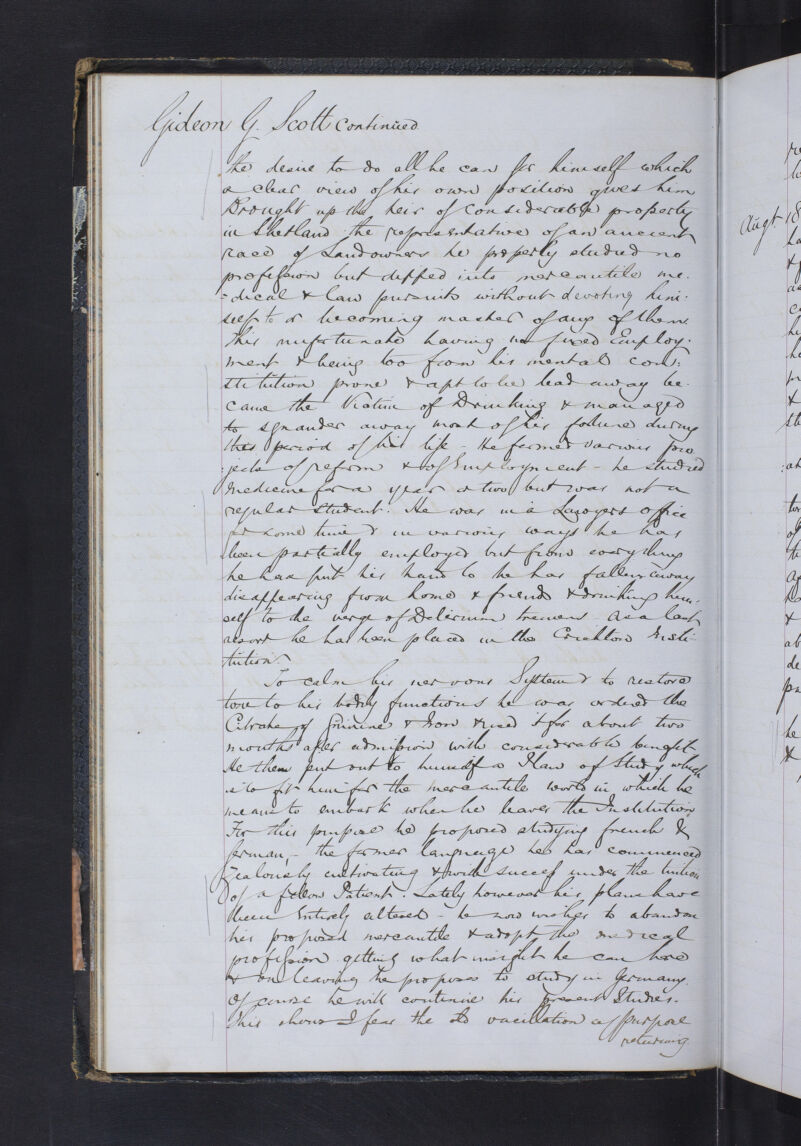 Gideon G. Scott continued
the desire to do all he can for himself which
a clear view of his own position gives him
Brought up the heir of considerable property
in Shetland the representative of an ancient
race of Landowners he properly studied no
profession but dipped into mercantile me-
-dical & law pursuits without devoting him-
self to or becoming master of any of them
this unfortunate having no fixed Employ-
ment & being too from his mental con-
stitution prone & apt to be lead away be-
came the Victim of Drinking & managed
to squander away most of his fortune during
this period of his life - He formed various pro
-jects of reform & of Employment - he studied
Medicine for a year or two but was not a
regular Student. He was in a Lawyers office
for some time & in various ways he has
been partially employed but from everything
he has put his hand to he has fallen away
disappearing from home & friends & drinking him-
self to the verge of Delirium tremens. As a last
resort he has been placed in the Crichton Insti-
tution.
To calm his nervous System & to restore
tone to his bodily functions he was ordered the
Citrate of Quinine & Iron & used it for about two
months after admission with considerable benefit
He then put out to himself a Plan of Study which
is to fit him for the mercantile world in which he
means to embark when he leaves the Institution
For this purpose he proposed studying french &
german, - the former language he has commenced
zealously cultivating & with success under the tuition
of a fellow Patient. Lately however his plans have
been Entirely altered - he now wishes to abandon
his proposed mercantile & adopt the medical
profession getting what insight he can here
& on leaving he proposes to study in Germany.
Of course he will continue his present Studies.
This shows I fear the old vacillation of purpose
returning
Augt 18